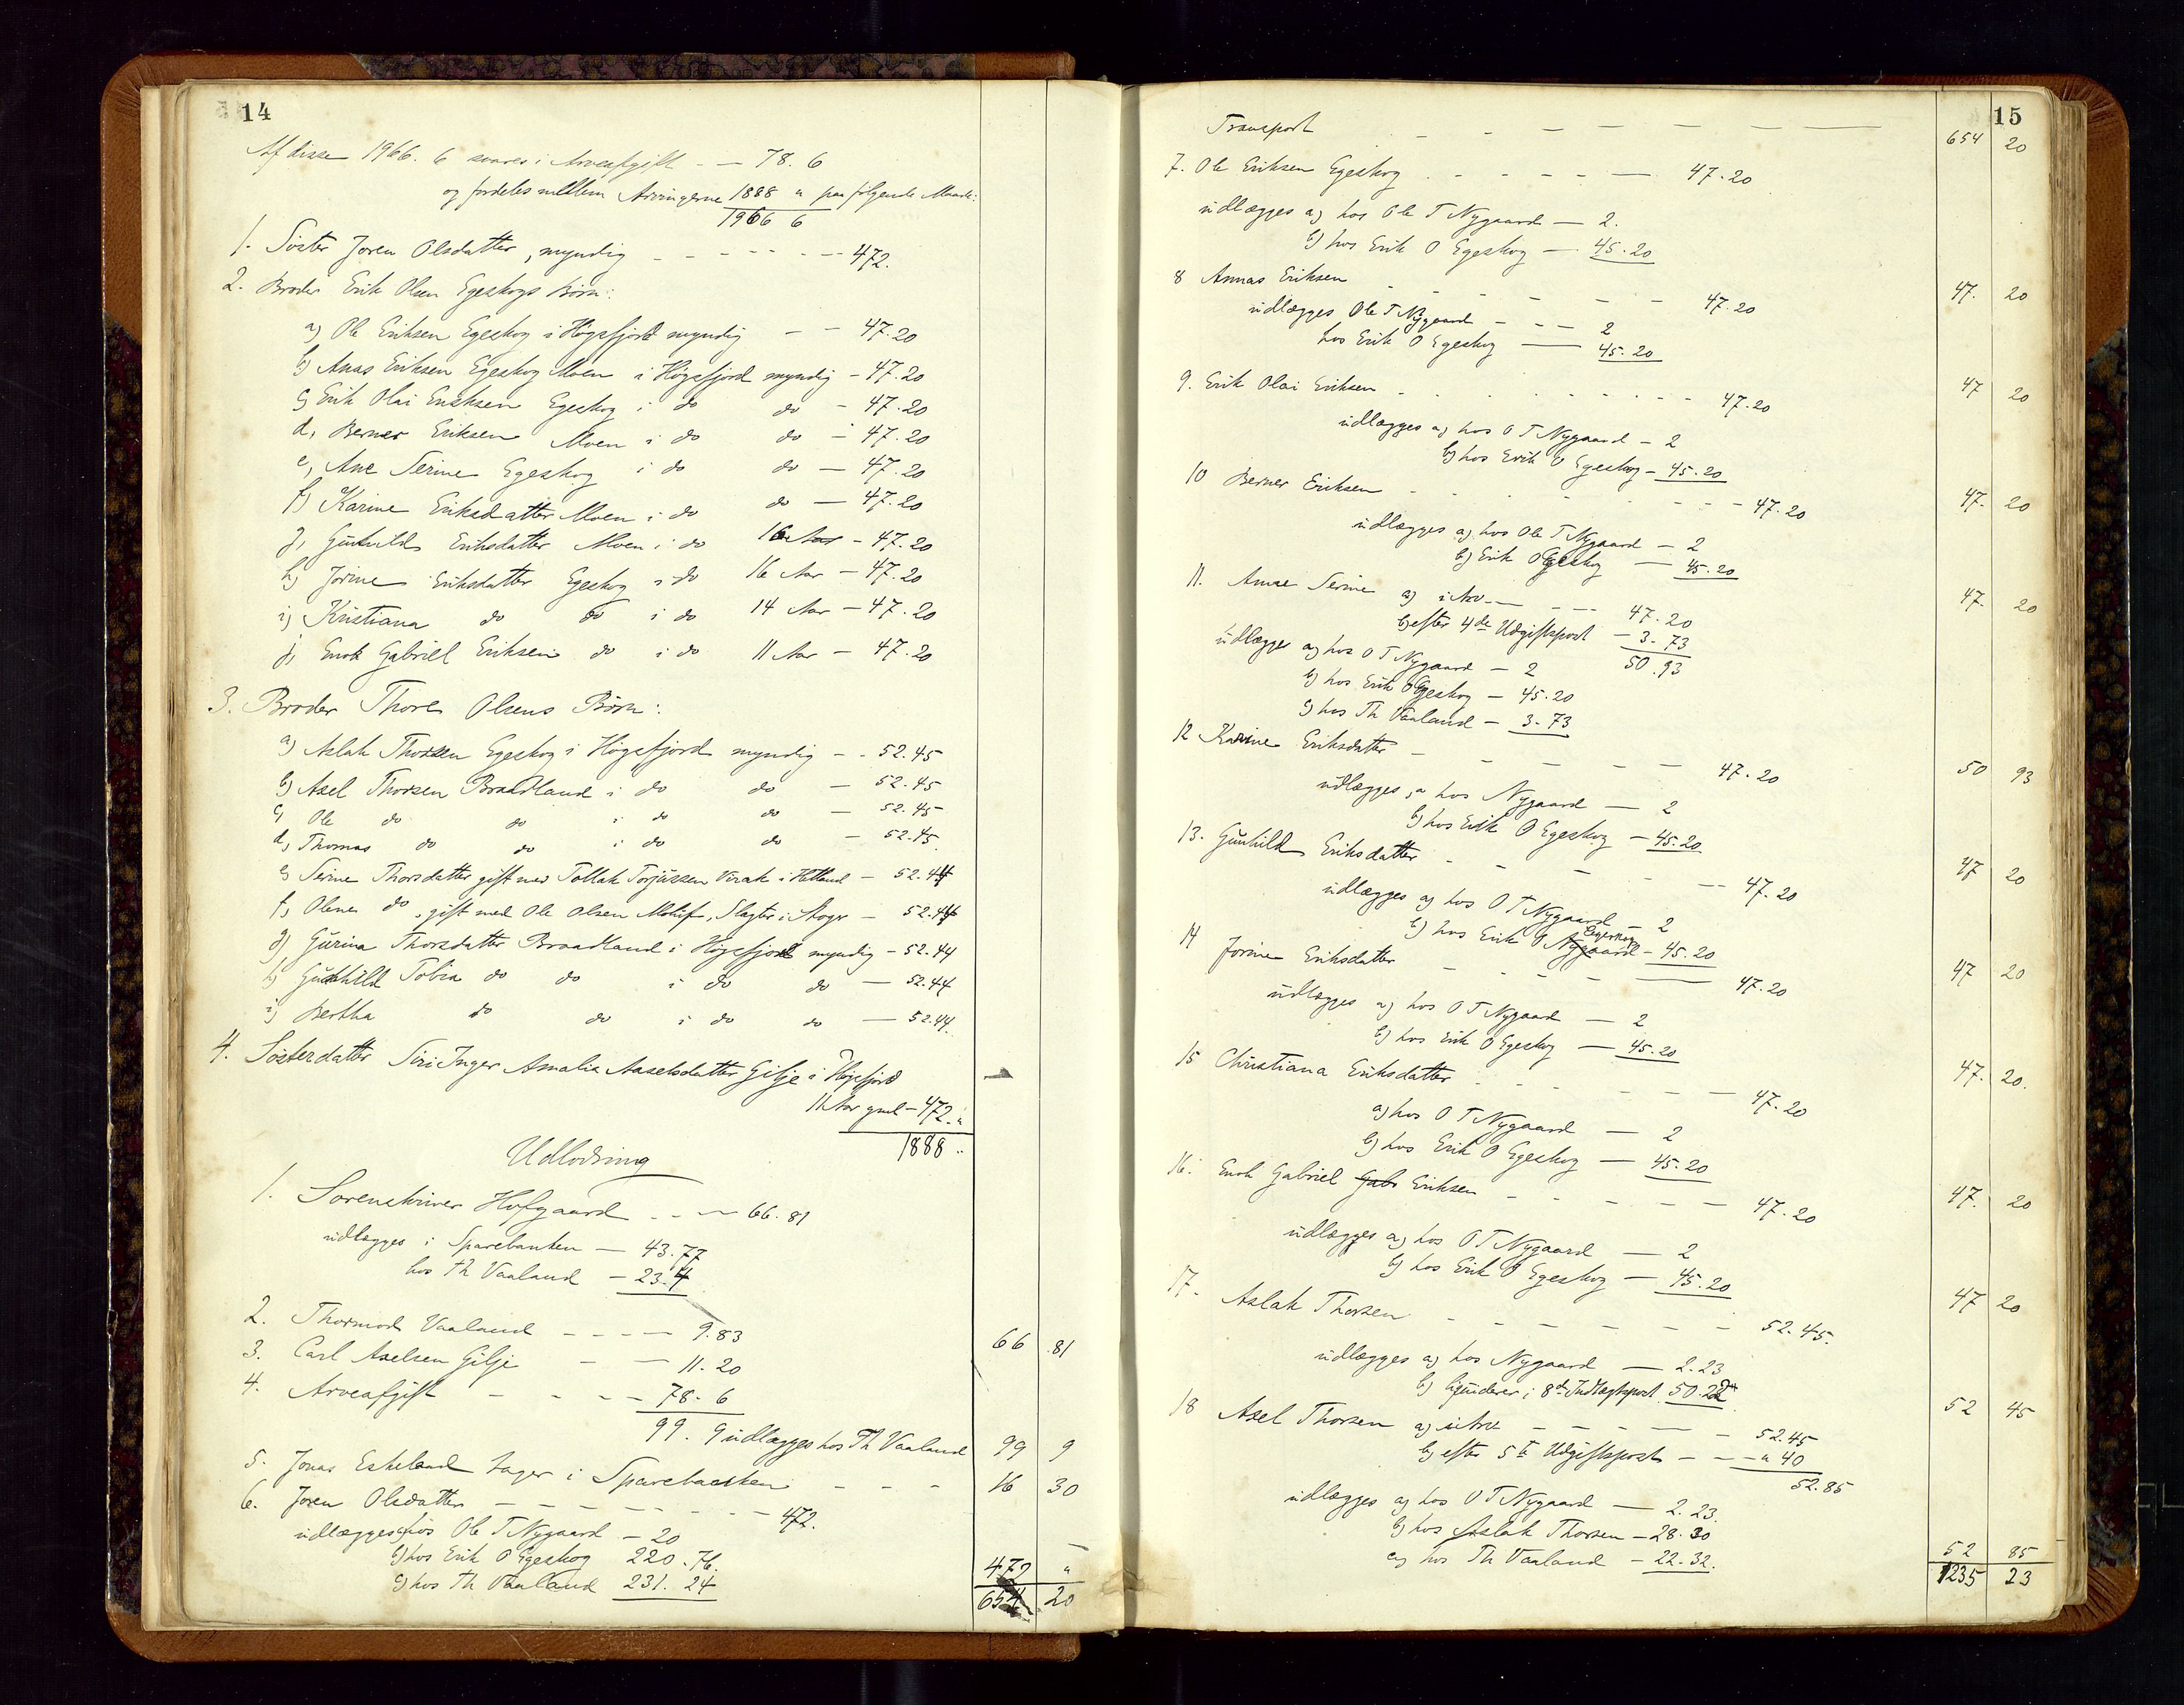 14
Af disse 1966. 6 svares i Arveafgift - — 78. 6
og fordeles mellem Arvingerne 1888 " paa følgende Maade:
1966 6
1. Søster Joren Olsdatter, myndig - - - - - — 472.
2. Broder Erik Olsen Egeskogs Børn:
a) Ole Eriksen Egeskog i Høgsfjord myndig - - 47.20
b) Anas Eriksen Egeskog Moen i Høgsfjord myndig - 47.20
c) Erik Olai Eriksen Egeskog i do do - 47.20
d, Berner Eriksen Moen i do do - 47.20
e, Ane Serine Egeskog i do do — 47.20
f) Karine Eriksdatter Moen i do do — 47.20
g, Gunhild Eriksdatter Moen i do 16 Aar - 47.20
h) Jorine Eriksdatter Egeskog i do 16 Aar — 47.20
i) Kristiana do do i do 14 Aar — 47.20
j, Enok Gabriel Eriksen do i do 11 Aar — 47.20
3. Broder Thore Olsens Børn:
a) Aslak Thorsen Egeskog i Høgsfjord myndig - - 52.45
b) Axel Thorsen Braadland i do do — 52.45
c, Ole do do i do do — 52.45
d, Thomas do do i do do - 52.45
e) Serine Thorsdatter gift med Tollak Torjussen Virak i Hetland - 52.44
f, Olene do, gift med Ole Olsen , Slagter i - 52.44
g) Gurina Thorsdatter Braadland i Høgsfjord myndig - 52.44
h) Gunhild Tobia do do i do do — 52.44
i) Bertha do do i do do — 52.44.
4. Søsterdatter Siri Inger Amalia Aaselsdatter Gilje i Høgsfjord
11 Aar gml - 472. "
1888 ..
Udlodning
1. Sorenskriver Hofgaard - - — 66.81
udlægges i Sparebanken — 43.77
hos Th Vaaland - 23.4
66 81
2. Thormod Vaaland - - - — 9.83
3. Carl Axelsen Gilje - — 11.20
4. Arveafgift - - - — 78. 6
99. 9 udlægges hos Th Vaaland 99 9
5. Jonas Eskeland tager i Sparebanken - - - 16 30
6. Joren Olsdatter - - - - - - - 472.
udlægges a) hos Ole T Nygaard - 20
b) hos Erik O Egeskog 220.76.
c) hos Th Vaaland 231. 24
472 "
654 20
15
Transport - - - - - - - 654 20
7. Ole Eriksen Egeskog - - - - - 47.20
udlægges a) hos Ole T Nygaard — 2.
b) hos Erik O Egeskog — 45.20
47. 20
8 Annas Eriksen - - - - - - 47.20
udlægges Ole T Nygaard - - — 2
hos Erik O Egeskog — 45.20
47 20
9. Erik Olai Eriksen - - - - - - - 47.20
udlægges a) hos O T Nygaard - 2
b) hos Erik O Egeskog - 45.20
47. 20
10 Berner Eriksen - - - - - - 47.20
udlægges a) hos Ole T Nygaard — 2
b) Erik O Egeskog — 45.20
47. 20
11. Annae Serine a) i Arv — - - - 47.20
b) efter 4de Udgiftspost - 3.73
50.93
udlægges a) hos O T Nygaard - 2
b) hos Erik O Egeskog - 45.20
c) hos Th Vaaland - 3.73
50 93
12 Karine Eriksdatter - - - - - - 47.20
udlægges, a hos Nygaard — 2
b) hos Erik O Egeskog - 45.20
47 20
13. Gunhild Eriksdatter - - - - - 47.20
udlægges a) hos O T Nygaard - 2
b) hos Erik O Nygaard Egeskog - 45.20
47 20
14 Jorine Eriksdatter - - - - — 47.20
udlægges a) hos O T Nygaard — 2
b) hos Erik O Egeskog — 45.20
47. 20.
15 Christiana Eriksdatter - - - - - 47.20
a) hos O T Nygaard — 2
b) hos Erik O Egeskog — 45.20
47. 20
16. Enok Gabriel Gabr Eriksen - - - - - 47.20
udlægges a) hos O T Nygaard — 2
b) hos Erik O Egeskog — 45.20
47 20
17. Aslak Thorsen - - - - - - 52.45.
udlægges a) hos Nygaard — 2.23
b) liquiderer i 8de Indtægtspost 50.22
52 45
18 Axel Thorsen a) i Arv - - - - - 52.45
b) efter 5te Udgiftspost - - - " 40
52.85
udlægges a) hos O T Nygaard — 2.23.
b) hos Aslak Thorsen - 28.30
c) hos Th Vaaland - 22.32.
52 85
1235 23